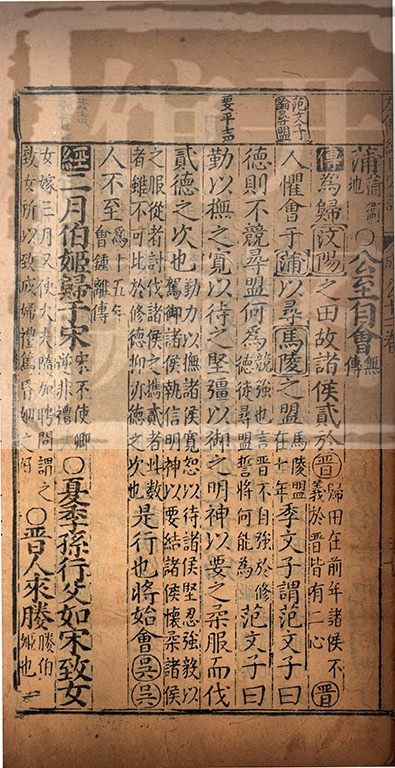 蒲蒲衛地○公至自會無傳
范文子論尋盟
傳為歸汶陽之田故諸侯貳於晉歸田在前年諸侯不義於晉皆有二心晉
人懼會于蒲以尋馬陵之盟馬陵盟在七年季文子謂范文子曰
德則不競尋盟何為競強也言晉不自強於修德徒尋盟誓將何能為范文子曰
要平声
勤以撫之寬以待之堅彊以御之明神以要之柔服而伐
貳德之次也勤力以撫諸侯寬恕以待諸侯堅忍強毅以駕御諸侯執信明神以要結諸侯懷柔諸侯
之服從者討伐諸侯之攜貳者此數者雖不可比於修德抑亦德之次也是行也將始會吳吳
人不至為十五年會鍾離傳
經二月伯姬歸于宋宋不使卿逆非禮○夏季孫行父如宋致女
女嫁三月又使大夫隨加聘問謂之致女所以致成婦禮篤昏姻之好○晉人來媵媵伯姬也